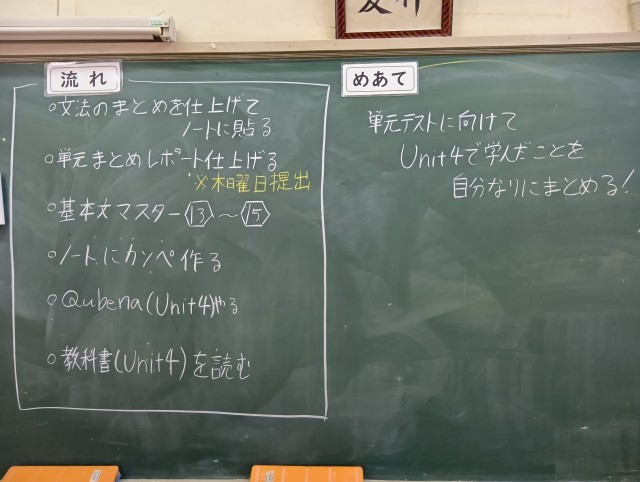 流れ
○文法のまとめを仕上げて
ノートに貼る
○単元まとめレポート仕上げる
※木曜日提出
○基本文マスター⟨13⟩～⟨15⟩
○ノートにカンペ作る
○Qubena(Unit4)やる
○教科書(Unit4)を読む
めあて
単元テストに向けて
Unit4で学んだことを
自分なりにまとめる!